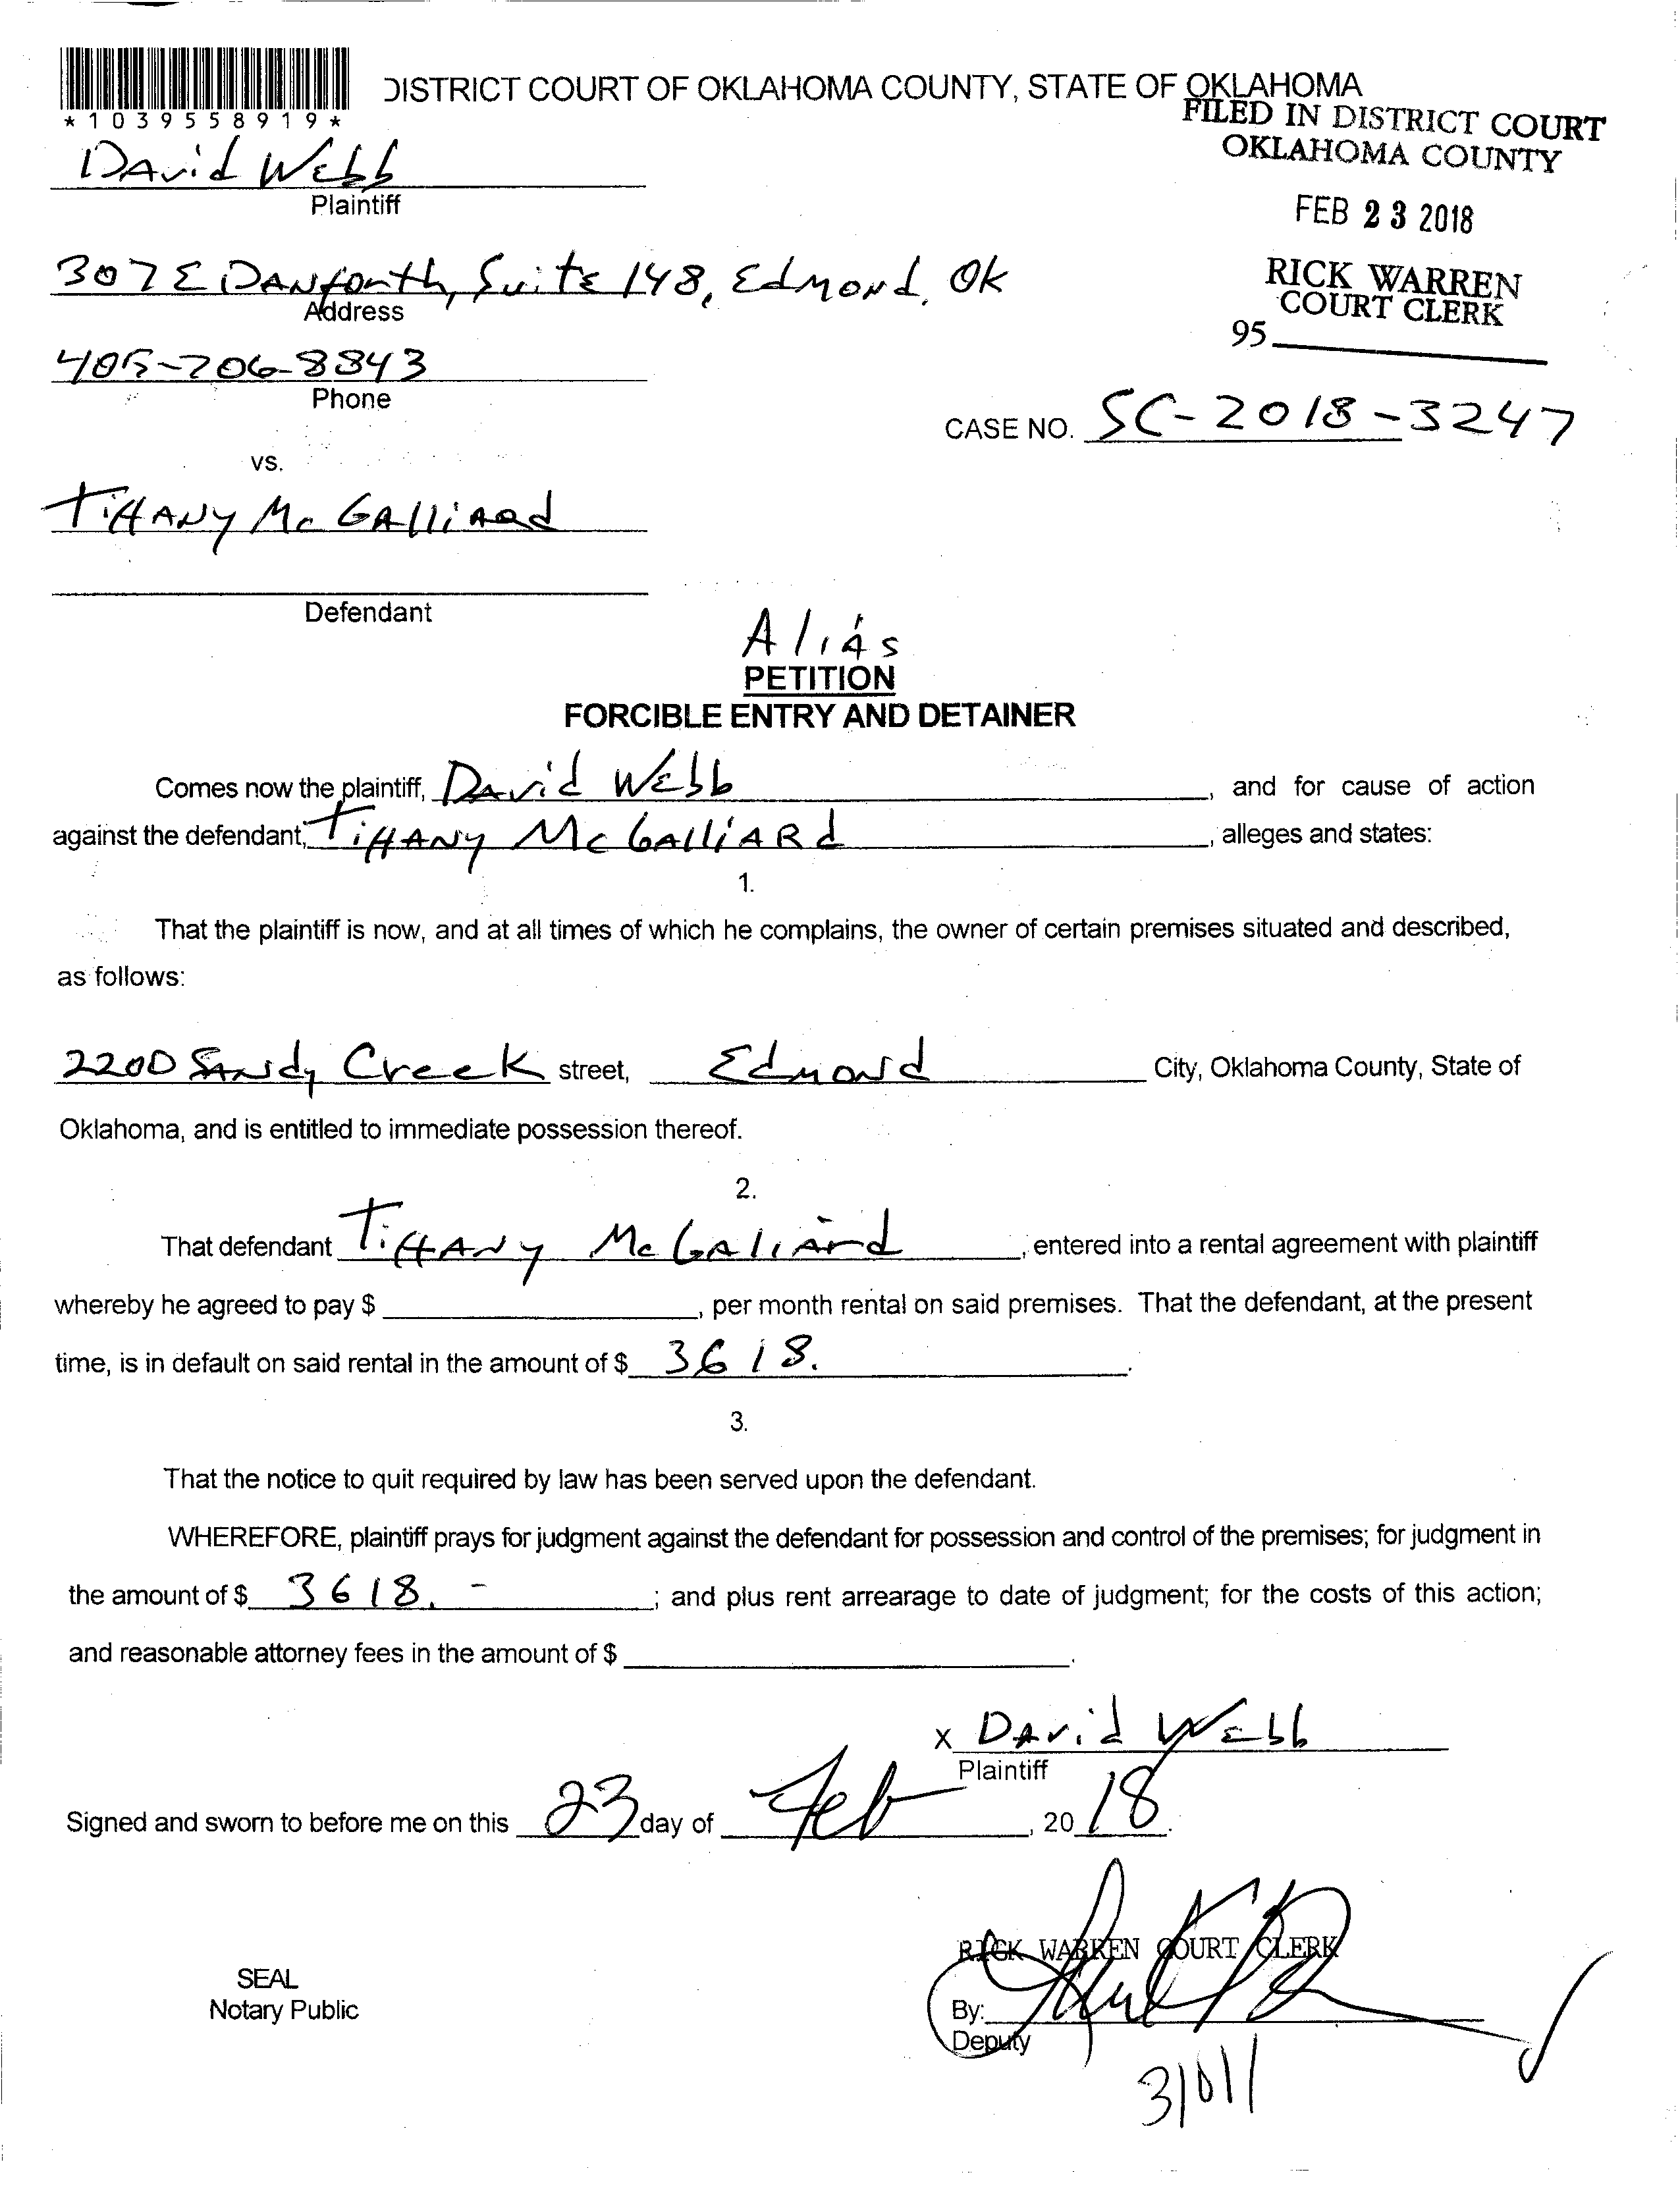 DISTRICT COURT OF OKLAHOMA COUNTY, STATE OF OKLAHOMA
*1039558919*
FILED IN DISTRICT COURT
OKLAHOMA COUNTY
David Webb
Plaintiff
FEB 23 2018
307 E Danforth, Suite 148, Edmond, OK
Address
RICK WARREN
COURT CLERK
95
405-706-8843
Phone
CASE NO. SC-2018-3247
vs.
Tiffany McGalliard
Defendant
Alias
PETITION
FORCIBLE ENTRY AND DETAINER
Comes now the plaintiff, David Webb, and for cause of action
against the defendant, Tiffany McGalliard, alleges and states:
1.
That the plaintiff is now, and at all times of which he complains, the owner of certain premises situated and described,
as follows:
2200 Sandy Creek street, Edmond City, Oklahoma County, State of
Oklahoma, and is entitled to immediate possession thereof.
2.
That defendant Tiffany McGaliard, entered into a rental agreement with plaintiff
whereby he agreed to pay $ , per month rental on said premises. That the defendant, at the present
time, is in default on said rental in the amount of $ 3618. .
3.
That the notice to quit required by law has been served upon the defendant.
WHEREFORE, plaintiff prays for judgment against the defendant for possession and control of the premises; for judgment in
the amount of $ 3618. - ; and plus rent arrearage to date of judgment; for the costs of this action;
and reasonable attorney fees in the amount of $ .
X David Webb
Plaintiff
Signed and sworn to before me on this 23 day of Feb, 20 18.
RICK WARREN COURT CLERK
SEAL
Notary Public
By:
Deputy